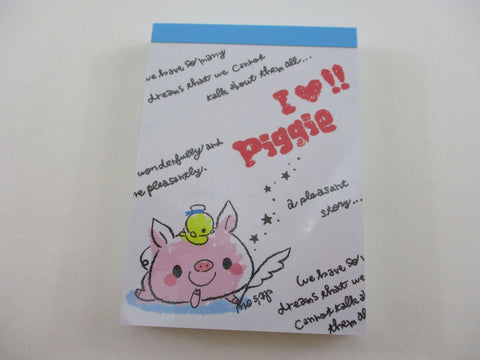 we have so many
dreams that we cannot
talk about them all...
I ♥!!
Piggie
wonderfully and
re pleasantly.
a pleasant
story...
we have so m
dreams that w
cannot talk ab
them all